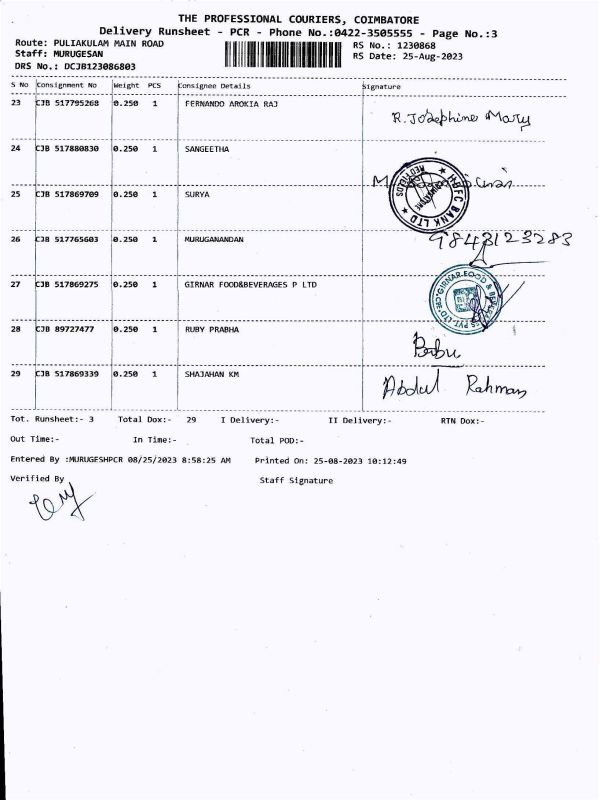 THE PROFESSIONAL COURIERS, COIMBATORE
Delivery Runsheet - PCR - Phone No.:0422-3505555 - Page No.:3
Route: PULIAKULAM MAIN ROAD
RS No.: 1230868
Staff: MURUGESAN
RS Date: 25-Aug-2023
DRS No.: DCJB123086803
S No Consignment No Weight PCS Consignee Details Signature
23 CJB 517795268 0.250 1 FERNANDO AROKIA RAJ R. Josephine Mary
24 CJB 517880830 0.250 1 SANGEETHA
25 CJB 517869709 0.250 1 SURYA HDFC BANK LTD
26 CJB 517765603 0.250 1 MURUGANANDAN 9843123283
27 CJB 517869275 0.250 1 GIRNAR FOOD&BEVERAGES P LTD GIRNAR FOOD & PVT. LTD CBE
28 CJB 89727477 0.250 1 RUBY PRABHA Babu
29 CJB 517869339 0.250 1 SHAJAHAN KM Abdul Rahman
Tot. Runsheet:- 3 Total Dox:- 29 I Delivery:- II Delivery:- RTN Dox:-
Out Time:- In Time:- Total POD:-
Entered By :MURUGESHPCR 08/25/2023 8:58:25 AM Printed On: 25-08-2023 10:12:49
Verified By Staff Signature